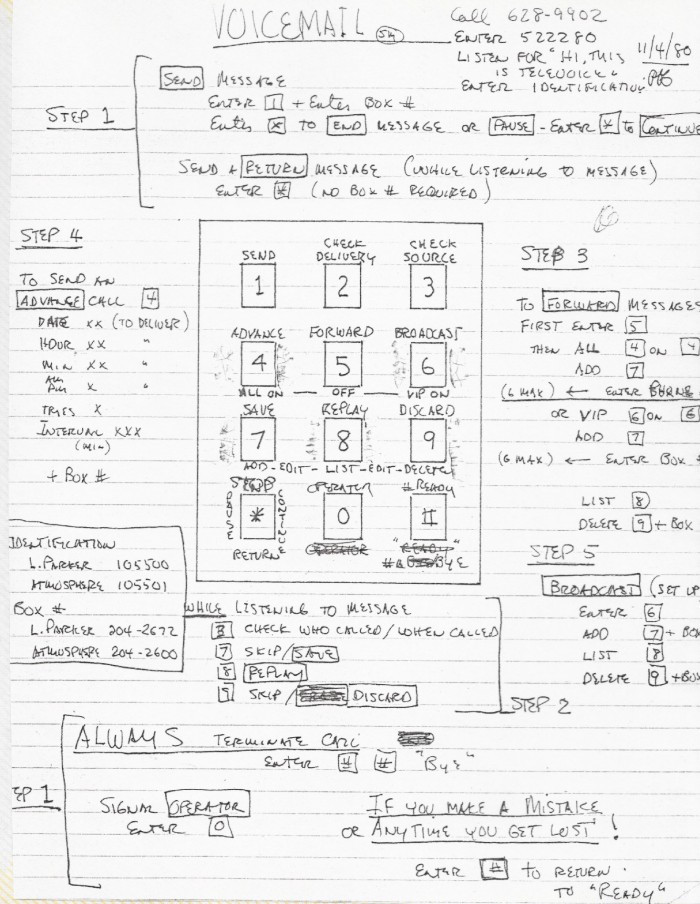 VOICEMAIL
Call 628-9902
ENTER 522280
LISTEN FOR "HI, THIS
IS TELEVOICE"
ENTER IDENTIFICATION
11/4/80
STEP 1
SEND MESSAGE
ENTER 1 + Enter BOX #
Enter * TO END MESSAGE OR PAUSE - ENTER * to CONTINUE
SEND A RETURN MESSAGE (WHILE LISTENING TO MESSAGE)
ENTER * (NO BOX # REQUIRED)
STEP 4
TO SEND AN
ADVANCE CALL 4
DATE XX (TO DELIVER)
HOUR XX "
MIN XX "
AM
PM X "
TRIES X
INTERVAL XXX
(MIN)
+ BOX #
SEND
1
CHECK
DELIVERY
2
CHECK
SOURCE
3
ADVANCE
4
FORWARD
5
BROADCAST
6
ALL ON — OFF — VIP ON
SAVE
7
REPLAY
8
DISCARD
9
ADD - EDIT - LIST - EDIT - DELETE
PAUSE
*
CONTINUE
RETURN
OPERATOR
0
OPERATOR
# READY
#
"READY"
# BYE
STEP 3
TO FORWARD MESSAGES
FIRST ENTER 5
THEN ALL 4 ON 4
ADD 7
(6 MAX) ← ENTER
OR VIP 6 ON 6
ADD 7
(6 MAX) ← ENTER BOX #
LIST 8
DELETE 9 + BOX
STEP 5
BROADCAST (SET UP
ENTER 6
ADD 7 + BOX
LIST 8
DELETE 9 + BOX
IDENTIFICATION
L. PARKER 105500
ATMOSPHERE 105501
BOX #
L. PARKER 204-2672
ATMOSPHERE 204-2600
WHILE LISTENING TO MESSAGE
3 CHECK WHO CALLED/WHEN CALLED
7 SKIP/SAVE
8 REPLAY
9 SKIP/ DISCARD
STEP 2
ALWAYS TERMINATE CALL
ENTER # # "BYE"
EP 1
SIGNAL OPERATOR
ENTER 0
IF YOU MAKE A MISTAKE
OR ANYTIME YOU GET LOST!
ENTER # to RETURN
TO "READY"